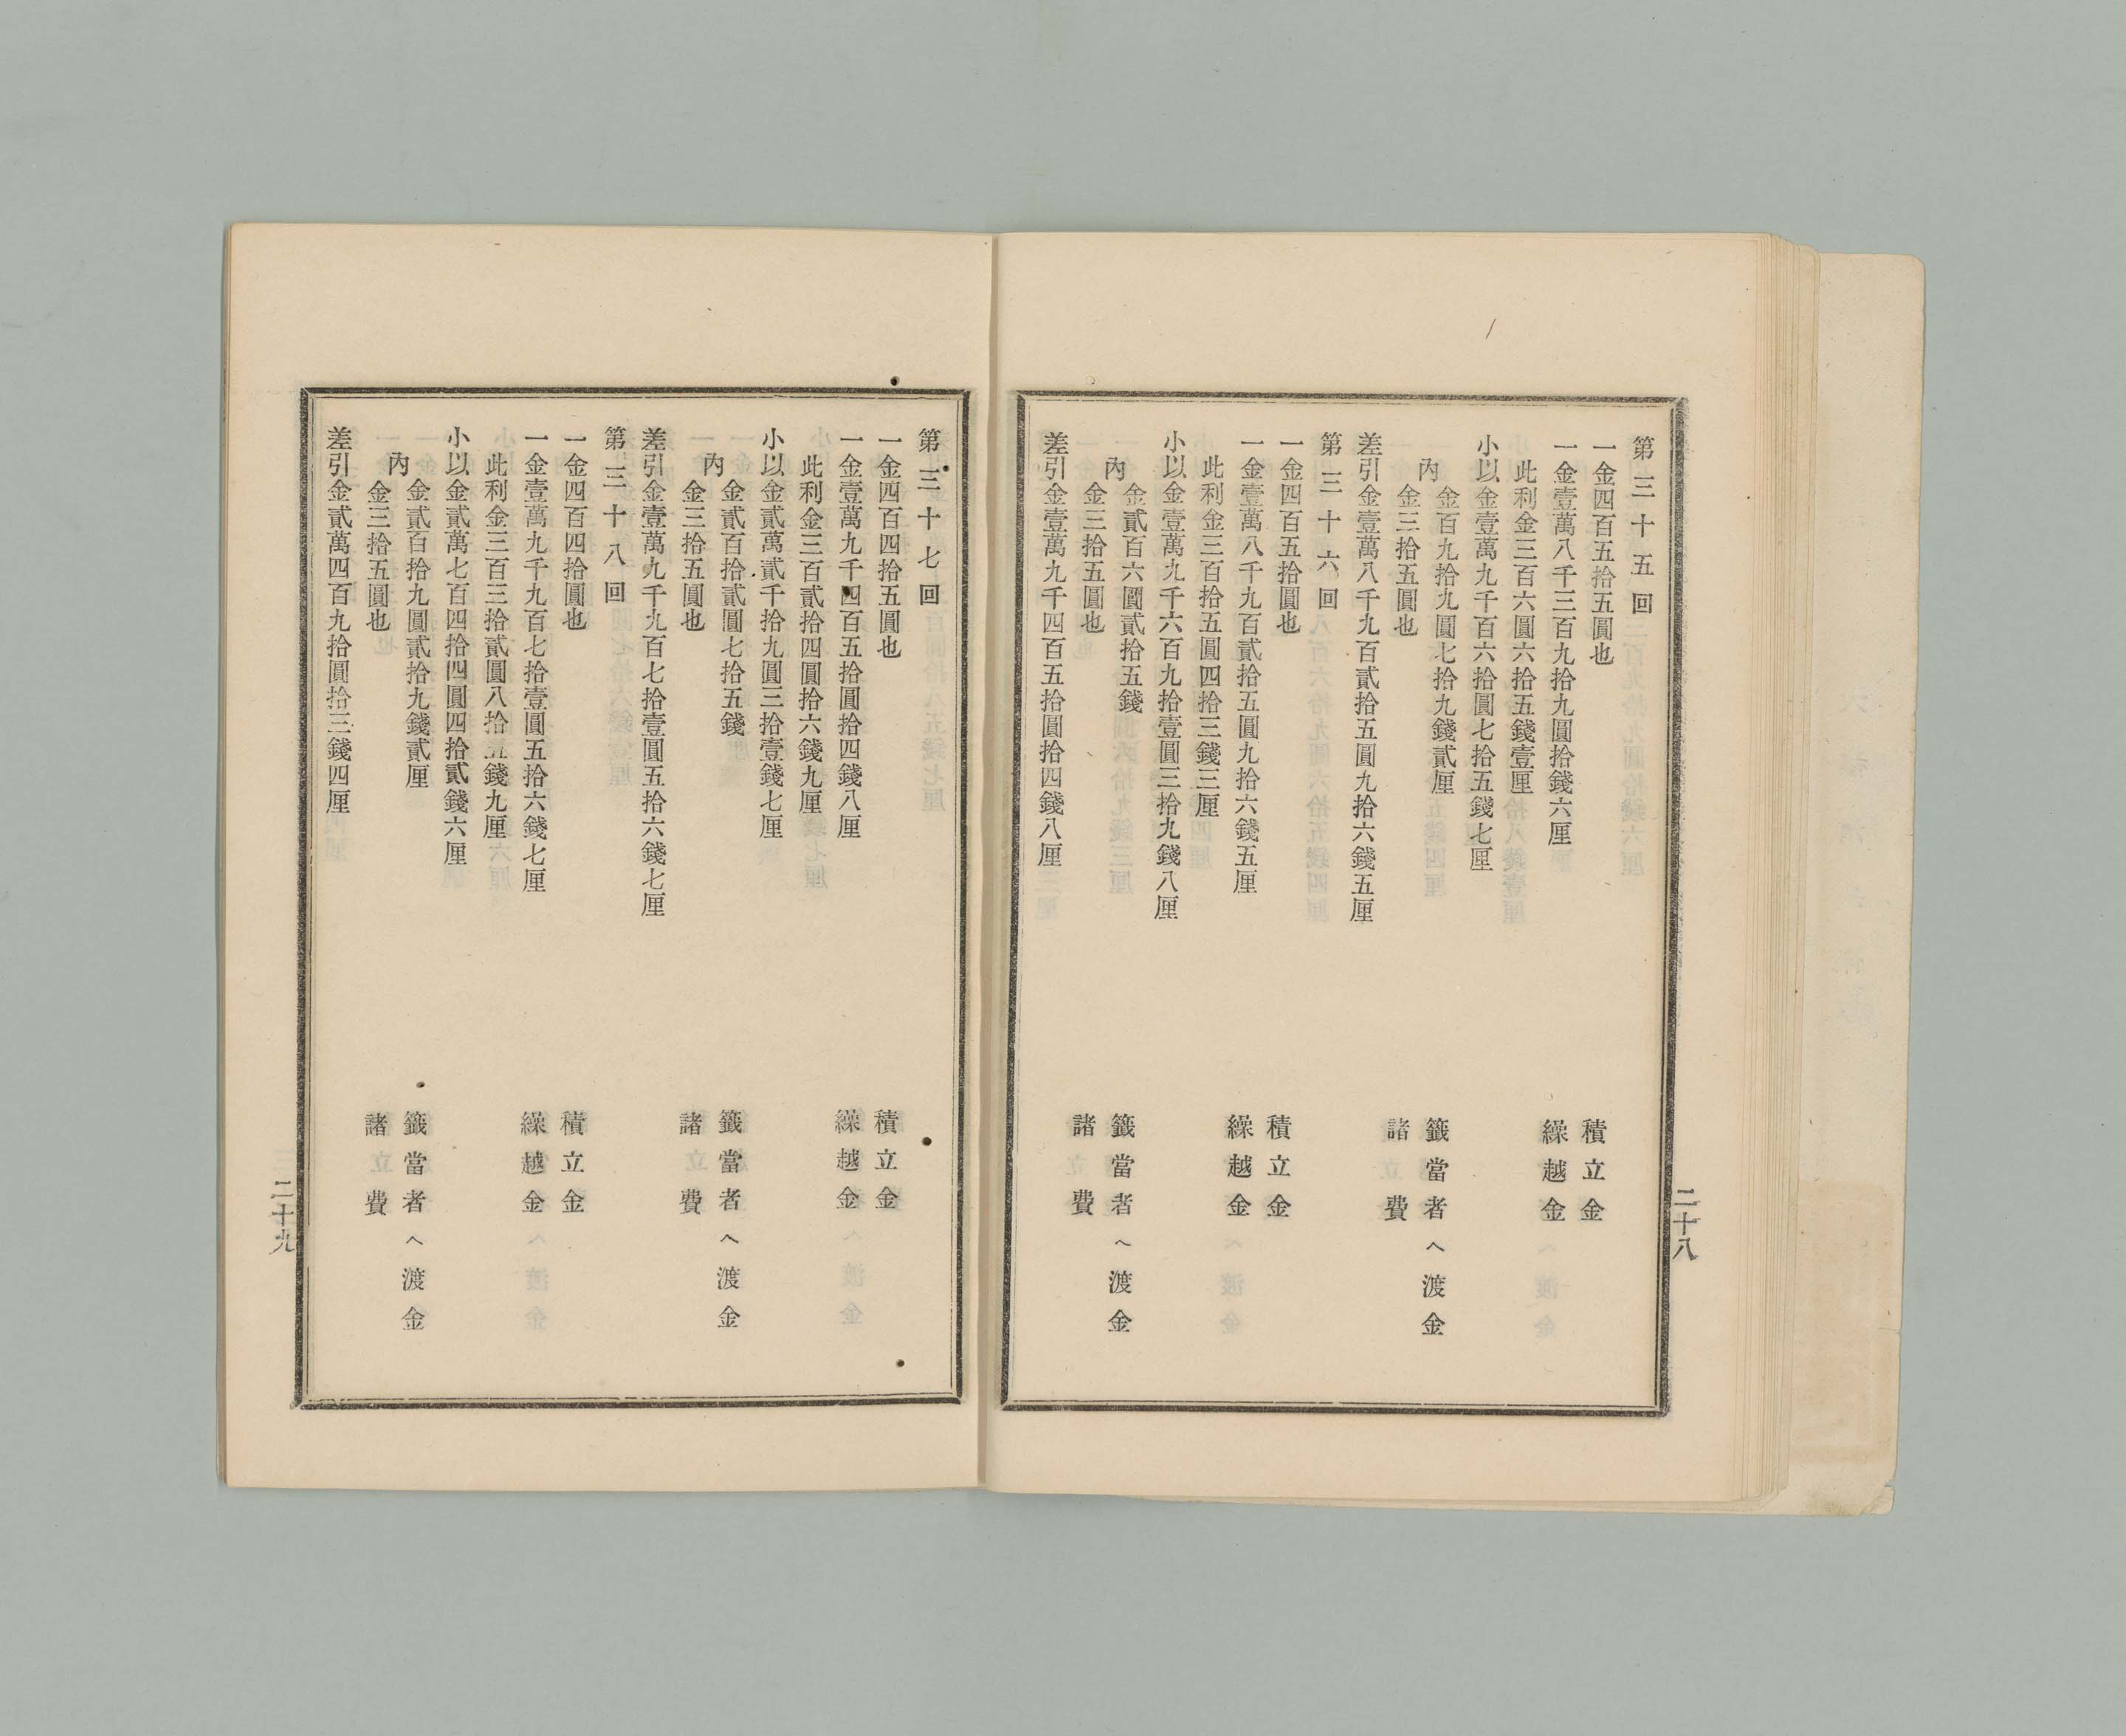 第三十五回
一金四百五拾五圓也 積立金
一金壹萬八千三百九拾九圓拾錢六厘 繰越金
此利金三百六圓六拾五錢壹厘
小以金壹萬九千百六拾圓七拾五錢七厘
內 金百九拾九圓七拾九錢貳厘 籤當者へ渡金
金三拾五圓也 諸費
差引金壹萬八千九百貳拾五圓九拾六錢五厘
第三十六回
一金四百五拾圓也 積立金
一金壹萬八千九百貳拾五圓九拾六錢五厘 繰越金
此利金三百拾五圓四拾三錢三厘
小以金壹萬九千六百九拾壹圓三拾九錢八厘
內 金貳百六圓貳拾五錢 籤當者へ渡金
金三拾五圓也 諸費
差引金壹萬九千四百五拾圓拾四錢八厘
二十八
第三十七回
一金四百四拾五圓也 積立金
一金壹萬九千四百五拾圓拾四錢八厘 繰越金
此利金三百貳拾四圓拾六錢九厘
小以金貳萬貳千拾九圓三拾壹錢七厘
內 金貳百拾貳圓七拾五錢 籤當者へ渡金
金三拾五圓也 諸費
差引金壹萬九千九百七拾壹圓五拾六錢七厘
第三十八回
一金四百四拾圓也 積立金
一金壹萬九千九百七拾壹圓五拾六錢七厘 繰越金
此利金三百三拾貳圓八拾五錢九厘
小以金貳萬七百四拾四圓四拾貳錢六厘
內 金貳百拾九圓貳拾九錢貳厘 籤當者へ渡金
金三拾五圓也 諸費
差引金貳萬四百九拾圓拾三錢四厘
二十九